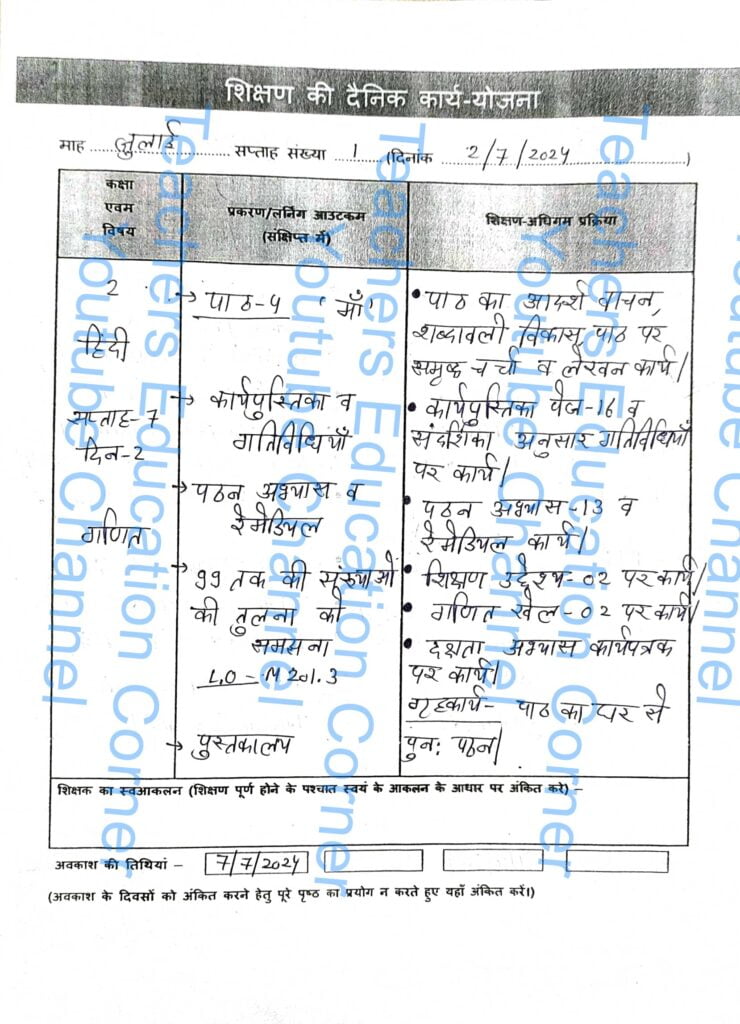 शिक्षण की दैनिक कार्य-योजना
माह जुलाई सप्ताह संख्या 1 (दिनांक 2/7/2024)
कक्षा
एवम
विषय
प्रकरण/लर्निंग आउटकम
(संक्षिप्त में)
शिक्षण-अधिगम प्रक्रिया
2
हिंदी
सप्ताह-7
दिन-2
गणित
→ पाठ-4 (माँ)
→ कार्यपुस्तिका व
गतिविधियाँ
→ पठन अभ्यास व
रेमेडियल
→ 99 तक की संख्याओं
की तुलना को
समझना
L.O - M 201.3
→ पुस्तकालय
• पाठ का आदर्श वाचन,
शब्दावली विकास, पाठ पर
समृद्ध चर्चा व लेखन कार्य।
• कार्यपुस्तिका पेज-16 व
संदर्शिका अनुसार गतिविधियाँ
पर कार्य।
• पठन अभ्यास-13 व
रेमेडियल कार्य।
• शिक्षण उद्देश्य-02 पर कार्य।
• गणित खेल-02 पर कार्य।
• दक्षता अभ्यास कार्यपत्रक
पर कार्य।
गृहकार्य- पाठ का घर से
पुनः पठन।
शिक्षक का स्वआकलन (शिक्षण पूर्ण होने के पश्चात स्वयं के आकलन के आधार पर अंकित करे) –
अवकाश की तिथियां – 7/7/2024
(अवकाश के दिवसों को अंकित करने हेतु पूरे पृष्ठ का प्रयोग न करते हुए यहाँ अंकित करें।)
Teachers Education Corner
Youtube Channel
Teachers Education Corner
Youtube Channel
Teachers Education Corner
Youtube Channel